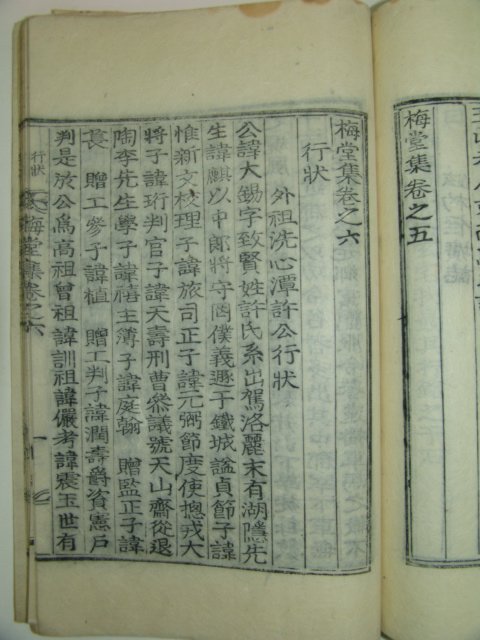 梅堂集卷之五
梅堂集卷之六
行狀
外祖洗心潭許公行狀
公諱大錫字致賢姓許氏系出駕洛麗末有湖隱先
生諱麒以中郞將守罔僕義遯于鐵城謚貞節子諱
惟新文校理子諱旅司正子諱元弼節度使摠戎大
將子諱珩判官子諱天壽刑曹叅議號天山齋從退
陶李先生學子諱禧主簿子諱庭翰 贈監正子諱
長 贈工叅子諱植 贈工判子諱潤壽爵資憲戶
判是於公爲高祖曾祖諱訓祖諱儼考諱震玉世有
行狀
梅堂集卷之六
一